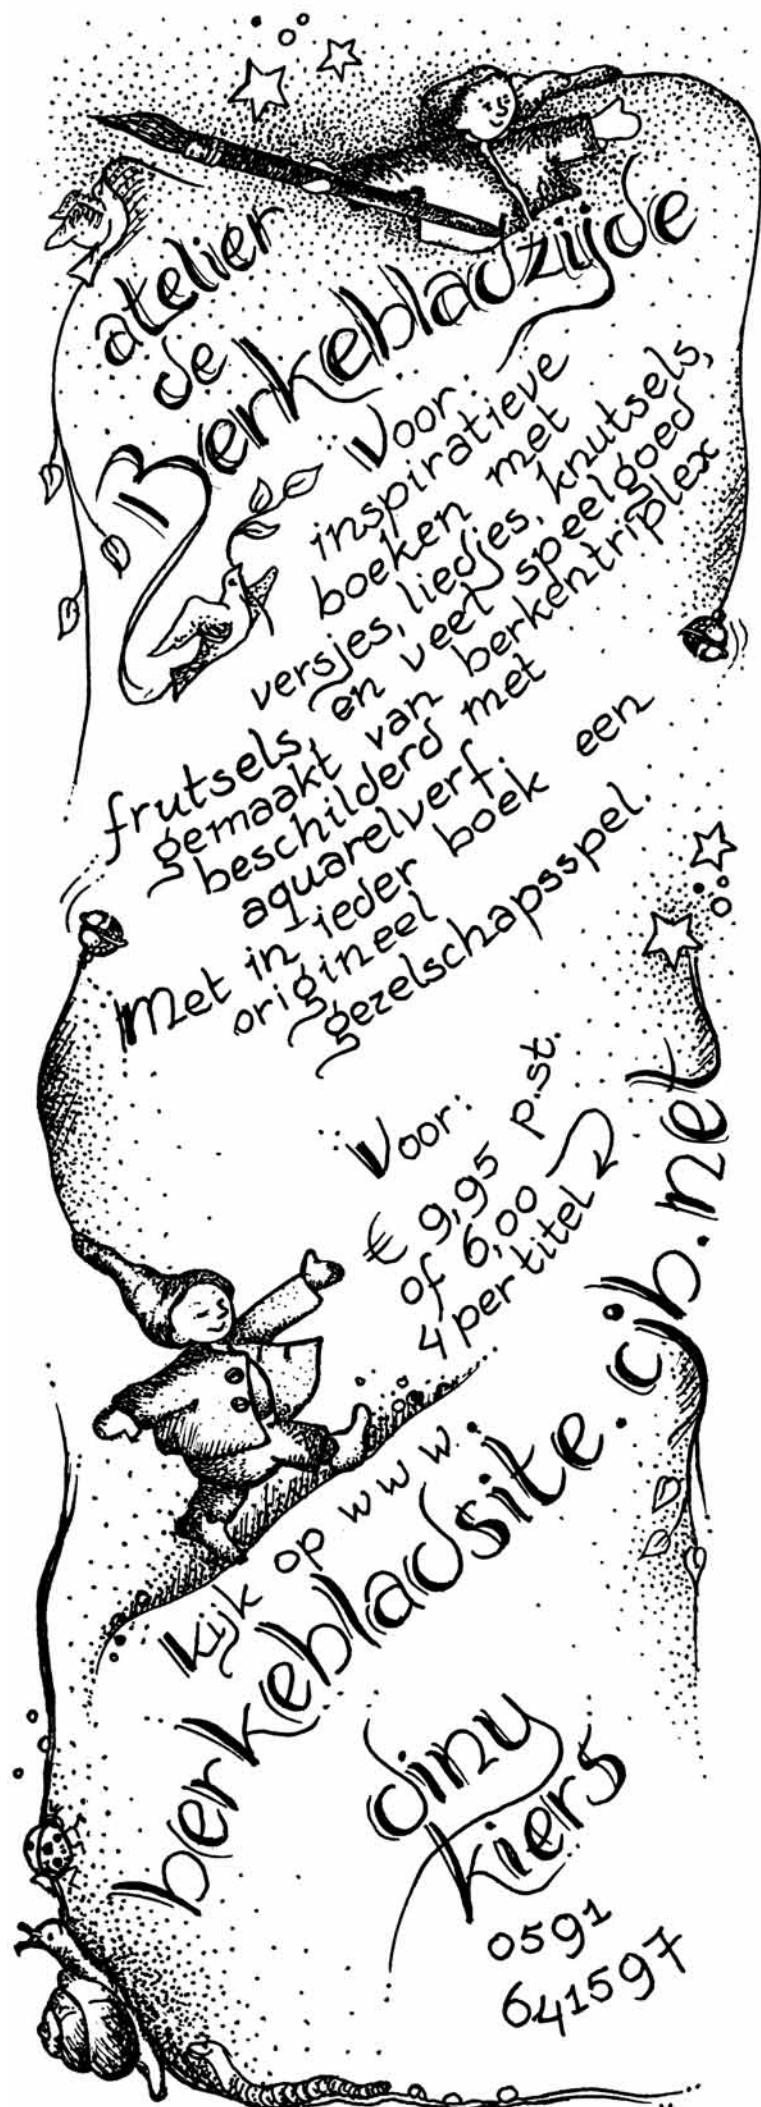 atelier
de
Berkebladzijde
Voor:
inspiratieve
boeken met
versjes, liedjes, knutsels,
frutsels, en veel speelgoed
gemaakt van berkentriplex
beschilderd met
aquarelverf.
Met in ieder boek een
origineel
gezelschapsspel.
Voor:
€ 9,95 p.st.
of 6,00
4 per titel
kijk op www.
berkebladsite.cjb.net
diny
kiers
0591
641597